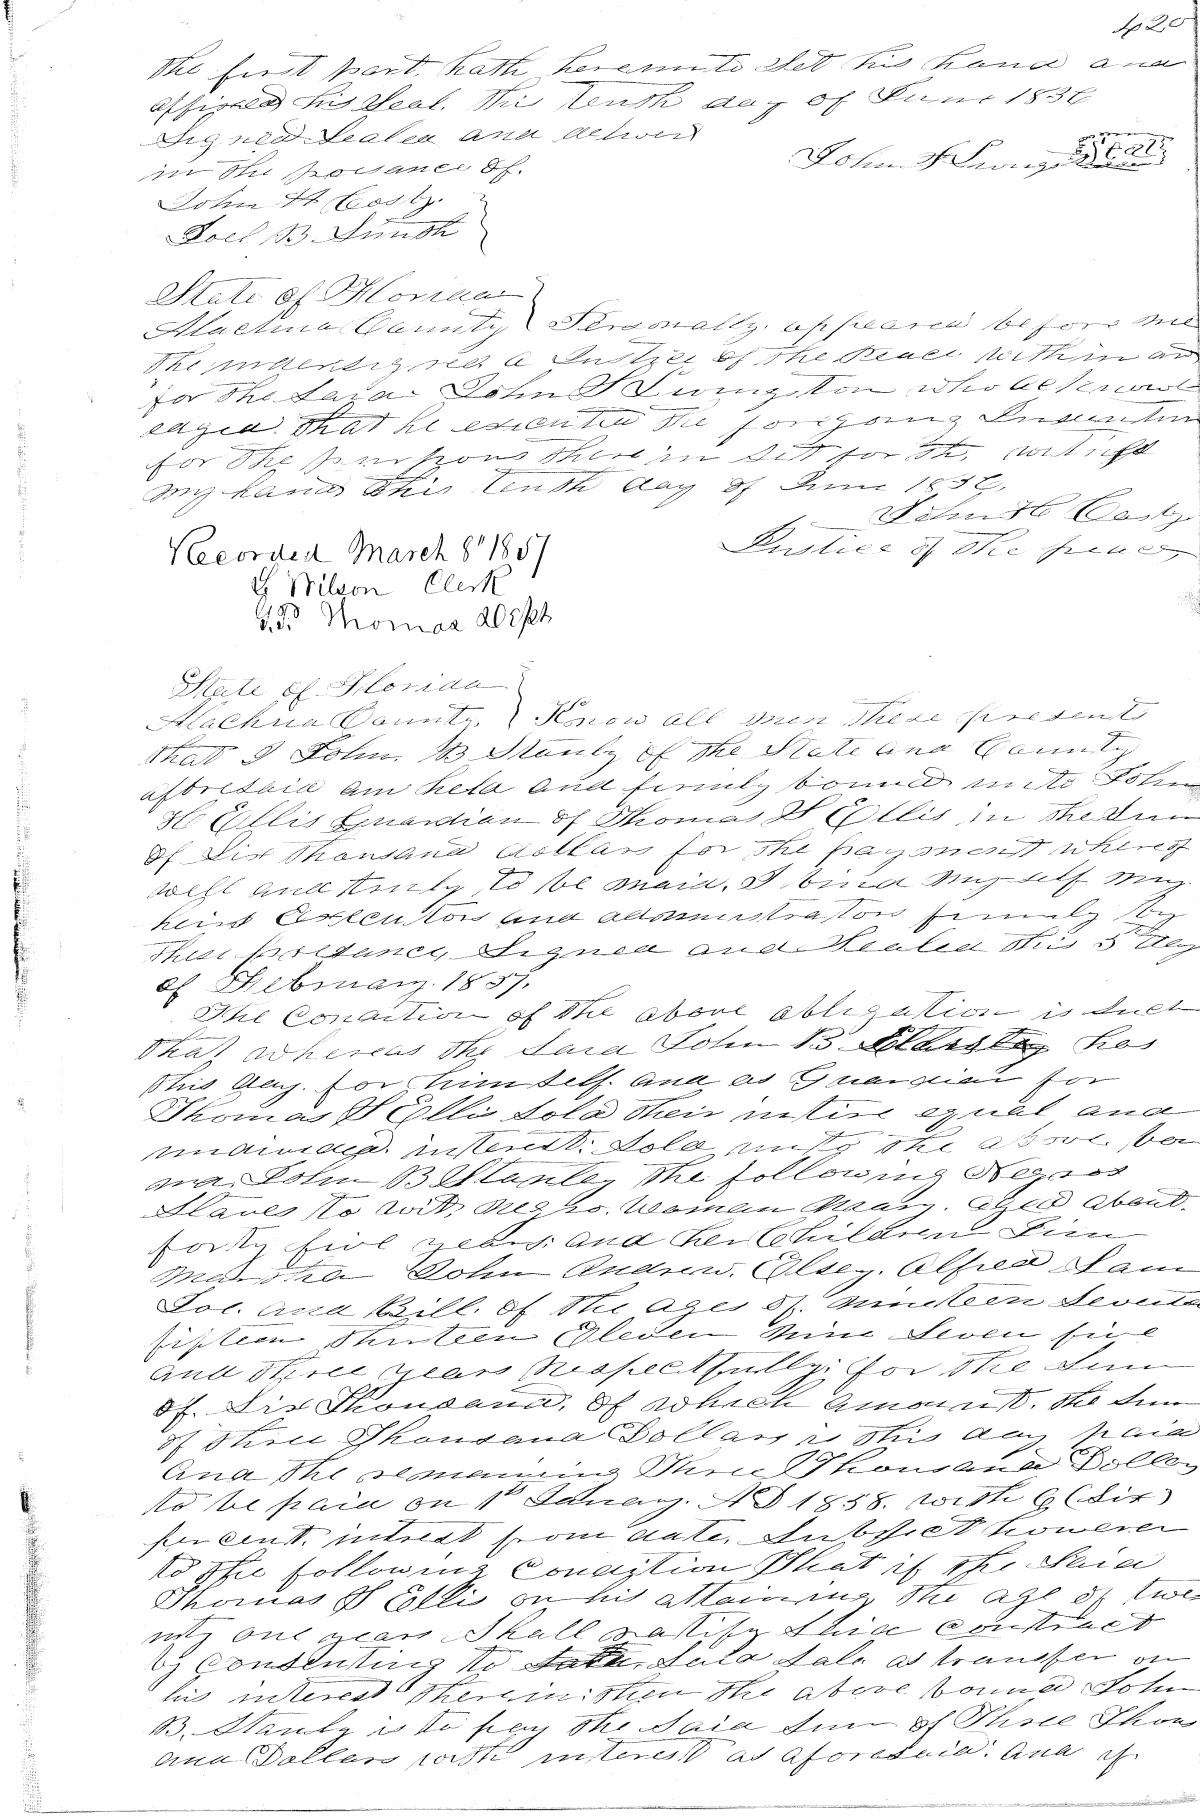 420
the first part, hath hereunto Set his hand and
affixed his Seal. this tenth day of June 1836
Signed Sealed and deliverd
in the presance of.
John S Livingston Seal
John H Cosby.
Joel B. Smith
State of Florida
Alachua County Personally. appeared before me
the undersigned a Justice of the Peace within an
for the Said John S Livingston who acknowl
edged. that he executed the foregoing Indenture
for the purposes therein Set forth, witness
my hand this tenth day of June 1836.
John H Cosby
Justice of the peace
Recorded March 8th 1857
Wilson Clerk
Thomas Dept
State of Florida
Alachua County. Know all men these presents
that I John B Stanly of the State and County
aforesaid am held and firmly bound unto John
H Ellis Guardian of Thomas S Ellis in the Sum
of Six thousand dollars for the payment whereof
well and truly to be maid, I bind my self my
heirs Executors and administrators firmly by
these presance, Signed and Sealed this 5th day
of February. 1857.
The Condition of the above obligation is Such
that whereas the Said John B Stanley has
this day. for himself. and as Guardian for
Thomas S Ellis Sold their intire equal and
undivided. interest. Sold unto the above bou
nd. John B Stanley the following Negros
Slaves to wit, negro. woman Mary. aged about.
forty five years. and her Children Jim
Martha John Andrew. Elsey. Alfred Sam
Joe. and Bill. of the ages of. nineteen Seventee
fifteen thirteen Eleven nine Seven five
and three years Respectfully. for the Sum
of. Six Thousand. of which amount. the Sum
of three Thousand Dollars is this day paid
and the remaining Three Thousand Dollars
to be paid on 1st January. AD 1858. with 6 (Six)
per cent. intrest from date, Subject however
to the following Condition That if the Said
Thomas S Ellis on his attaining the age of twe
nty one years Shall ratify this contract
by consenting to Said Sale as transfer on
his interest therein: then the above bound John
B. Stanly is to pay the Said Sum of Three Thous
and Dollars with interest as aforesaid. and if